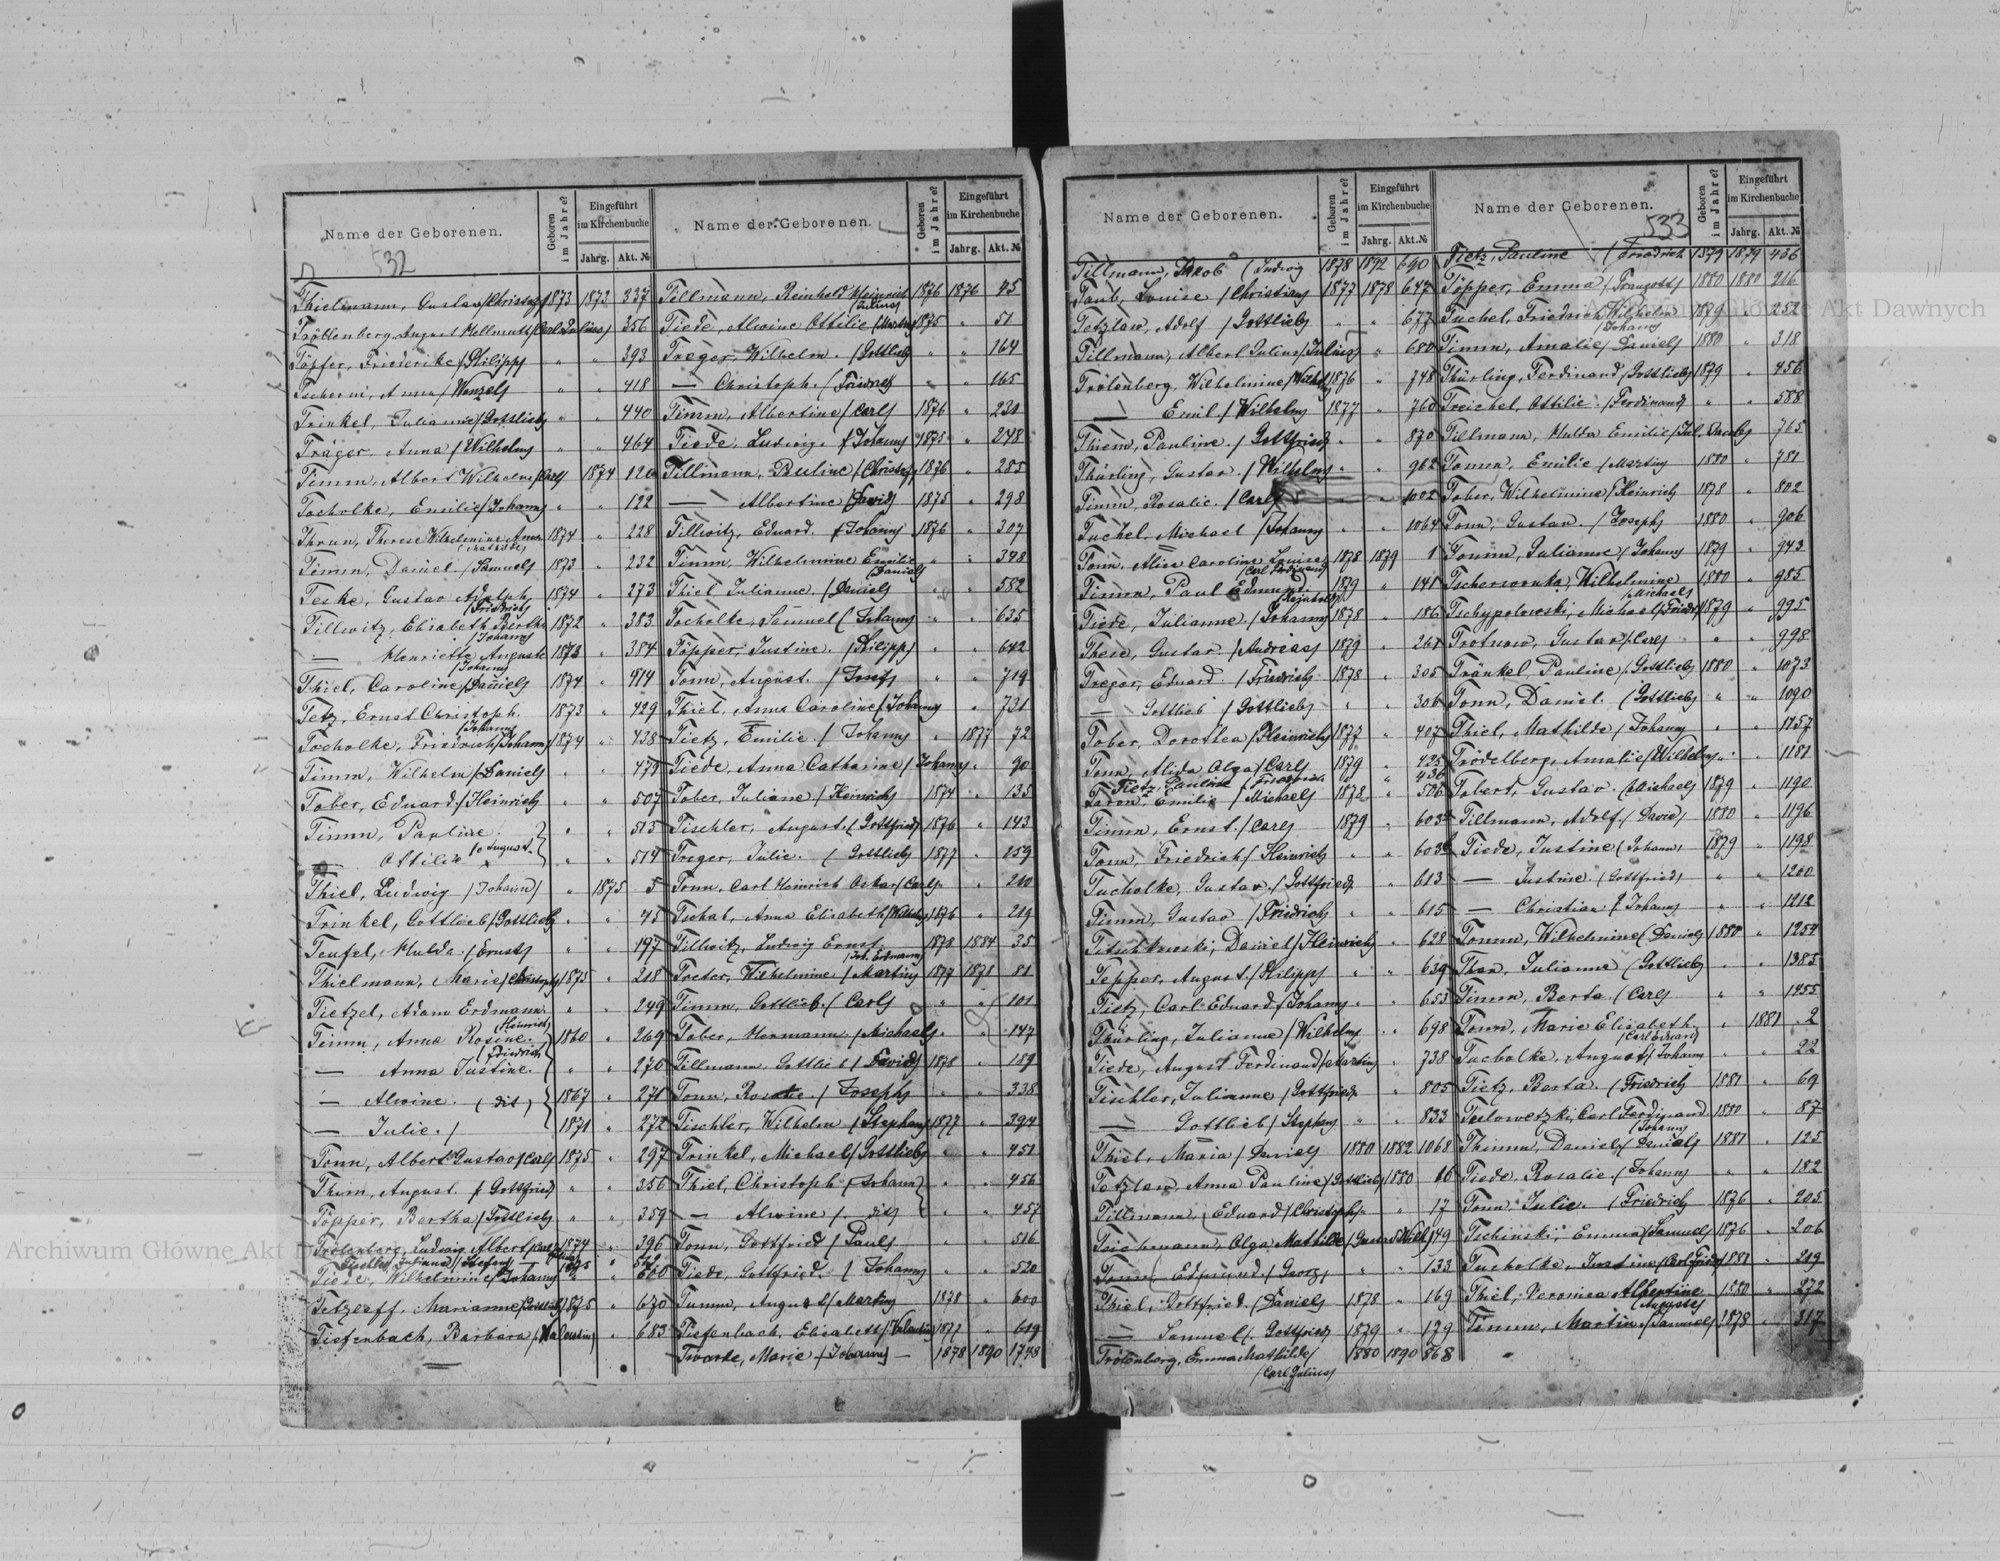 Name der Geborenen.
Geboren im Jahre?
Eingeführt im Kirchenbuche
Jahrg. Akt. №
532
Thielmann, Gustav /Christoph/ 1873 1873 337
Tröllenberg August Hellmuth /Carl Julius/ 356
Töpfer, Friederike /Philipp/ " " 393
Tscherni, Anna /Wenzel/ " " 418
Trinkel, Julianne /Gottlieb/ " " 440
Träger, Anna /Wilhelm/ " " 464
Timm, Albert Wilhelm /Carl/ 1874 120
Tocholke, Emilie /Johann/ " " 122
Thrun, Therese Wilhelmine Anna 1874 " 228
Timm, Daniel /Samuel/ 1873 " 232
Teske, Gustav Adolph 1874 " 273
/Friedrich/
Tillwitz, Elisabeth Bertha 1872 " 383
/Johann/
— Henriette Auguste 1873 " 384
/Johann/
Thiel, Caroline /Daniel/ 1874 " 414
Tetz, Ernst Christoph 1873 " 429
/Johann/
Tocholke, Friedrich /Johann/ 1874 " 438
Timm, Wilhelm /Daniel/ " " 479
Tober, Eduard /Heinrich/ " " 507
Timm, Pauline " " 513
— Ottilie /August/ " " 514
Thiel, Ludwig /Johann/ " 1875 5
Trinkel, Gottlieb /Gottlieb/ " " 45
Teufel, Hulda /Ernst/ " " 197
Thielmann, Marie /Christoph/ 1875 " 218
Tietzel, Adam Erdmann " " 249
/Heinrich/
Timm, Anna Rosine 1860 " 269
/Friedrich/
— Anna Justine " " 270
— Alwine (dit) 1867 " 271
— Julie / 1871 " 272
Tonn, Albert Gustav /Carl/ 1875 " 297
Thim, August /Gottfried/ " " 356
Töpper, Bertha /Gottlieb/ " " 359
Trötenberg, Ludwig Albert /Carl 1874 " 396
Tischler, Julianne /Stefan/
Tiede, Wilhelmine /Johann/ " " 600
Tetzlaff, Marianne /Gottlieb/ 1875 " 670
Tiefenbach, Barbara /Valentin/ " 683
Name der Geborenen.
Geboren im Jahre?
Eingeführt im Kirchenbuche
Jahrg. Akt. №
Tillmann, Reinhold Heinrich 1876 1876 45
/Julius/
Tiede, Alwine Ottilie /Martin/ 1875 " 51
Treger, Wilhelm /Gottlieb/ " " 164
— Christoph /Friedrich/ " 165
Timm, Albertine /Carl/ 1876 " 231
Tiede, Ludwig /Johann/ 1875 " 278
Tillmann, Pauline /Christoph/ 1876 " 285
— Albertine /David/ 1875 " 298
Tillwitz, Eduard /Johann/ 1876 " 307
Timm, Wilhelmine Emilie " " 348
/Daniel/
Thiel Julianne /Daniel/ " " 582
Tocholke, Samuel /Johann/ " " 635
Töpper, Justine /Philipp/ " " 642
Tonn, August /Josef/ " " 719
Thiel, Anna Caroline /Johann/ " 731
Tietz, Emilie /Johann/ " 1877 72
Tiede, Anna Catharine /Johann/ " " 90
Tober, Juliane /Heinrich/ 1874 " 135
Tischler, August /Gottfried/ 1876 " 143
Treger, Julie /Gottlieb/ 1877 " 159
Tonn, Carl Heinrich Oskar /Carl/ " " 210
Tschat, Anna Elisabeth /Wilhelm/ 1876 " 219
Tillwitz, Ludwig Ernst 1878 1884 35
/Joh. Erdmann/
Troeter, Wilhelmine /Martin/ 1877 1878 81
Timm, Gottlieb /Carl/ " " 101
Tober, Hermann /Michael/ " " 147
Tillmann, Gottlieb /David/ 1878 " 189
Tonn, Rosalie /Joseph/ " " 338
Tischler, Wilhelm /Stephan/ 1877 " 394
Trinkel, Michael /Gottlieb/ " " 451
Thiel, Christoph /Johann/ " " 456
— Alwine /dit/ " " 457
Tonn, Gottfried /Paul/ " " 516
Tiede, Gottfried /Johann/ " " 520
Tumm, August /Martin/ 1878 " 600
Tiefenbach, Elisabeth /Valentin/ 1877 " 619
Twarde, Marie /Johann/ — 1878 1890 1748
Name der Geborenen.
Geboren im Jahre?
Eingeführt im Kirchenbuche
Jahrg. Akt. №
Tillmann, Jakob /Ludwig 1878 1892 690
Taub, Louise /Christian/ 1877 1878 647
Tetzlaw, Adolf /Gottlieb/ " " 677
Tillmann, Albert Julius /Julius/ " 680
Trötenberg, Wilhelmine /Wilhelm/ 1876 " 748
— Emil /Wilhelm/ 1877 " 760
Thiem, Pauline /Gottfried/ " " 870
Thürling, Gustav /Wilhelm/ " " 962
Timm, Rosalie /Carl/ " " 1002
Tuchel, Michael /Johann/ " " 1064
Tonn, Alice Caroline Louise 1878 1879 1
/Carl Ferdinand/
Timm, Paul Edmund 1879 " 141
Tiede, Julianne /Johann/ 1878 " 186
These, Gustav /Andreas/ 1879 " 261
Treger, Eduard /Friedrich/ 1878 " 305
— Gottlieb /Gottlieb/ " " 306
Tober, Dorothea /Heinrich/ 1877 " 407
Tonn, Alida Olga /Carl/ 1879 " 425
Tietz, Pauline /Friedrich " " 436
Taron, Emilie /Michael/ 1878 " 506
Timm, Ernst /Carl/ 1879 " 603
Tonn, Friedrich /Heinrich/ " " 603
Tucholke, Gustav /Gottfried/ " " 613
Timm, Gustav /Friedrich/ " " 615
Titschkowski, Daniel /Heinrich/ " 628
Tepper, August /Philipp/ " " 639
Tietz, Carl Eduard /Johann/ " " 653
Thürling, Julianne /Wilhelm/ " " 698
Tiede, August Ferdinand /Martin/ " 738
Tischler, Julianne /Gottfried/ " " 805
— Gottlieb /Stephan/ " " 833
Thiel, Maria /Daniel/ 1880 1882 1068
Tetzlaw, Anna Pauline /Gottlieb/ 1880 16
Tillmann, Eduard /Christoph/ " " 17
Teichmann, Olga Mathilde /Gustav Wilh/ 49
Tonn, Edmund /Georg/ " " 133
Thiel, Gottfried /Daniel/ 1878 " 169
— Samuel /Gottfried/ 1879 " 179
Trötenberg, Emma Mathilde/ 1880 1890 868
/Carl Julius/
Name der Geborenen.
Geboren im Jahre?
Eingeführt im Kirchenbuche
Jahrg. Akt. №
533
Tietz, Pauline /Friedrich 1879 1879 436
Töpper, Emma /Franzott/ 1880 1880 216
Tuchel, Friedrich Wilhelm 1879 " 252
/Johann/
Timm, Amalie /Daniel/ 1880 " 318
Thürling, Ferdinand /Gottlieb/ 1879 " 456
Treichel, Ottilie /Ferdinand/ " " 588
Tillmann, Hulda Emilie /Jul. Jacob/ " 765
Tomm, Emilie /Martin/ 1880 " 781
Tober, Wilhelmine /Heinrich/ 1878 " 802
Tonn, Gustav /Joseph/ 1880 " 906
Tomm, Julianne /Johann/ 1879 " 943
Tscherwonka, Wilhelmine 1880 " 985
/Michael/
Tschypolowski, Michael /Friedr/ 1879 " 995
Trotnow, Gustav /Carl/ " " 998
Tränkel, Pauline /Gottlieb/ 1880 " 1073
Tonn, Daniel /Gottlieb/ " " 1090
Thiel, Mathilde /Johann/ " " 1157
Trödelberg, Amalie /Wilhelm/ " " 1181
Tobert, Gustav /Michael/ 1879 " 1190
Tillmann, Adolf /David/ 1880 " 1196
Tiede, Justine /Johann/ 1879 " 1198
— Justine /Gottfried/ " " 1200
— Christian /Johann/ " " 1212
Tomm, Wilhelmine /Daniel/ 1880 " 1254
Thon, Julianne /Gottlieb/ " " 1385
Timm, Berta /Carl/ " " 1455
Tonn, Marie Elisabeth " 1881 2
/Carl Eduard/
Tucholke, August /Johann " " 22
Tietz, Berta /Friedrich/ 1881 " 69
Teslowetzki, Carl Ferdinand 1880 " 87
/Johann/
Thimm, Daniel /Daniel/ 1881 " 125
Tiede, Rosalie /Johann/ " " 182
Tonn, Julie /Friedrich/ 1876 " 205
Tschinski, Emma /Samuel/ 1876 " 206
Tucholke, Justine /Carl Friedr/ 1881 " 219
Thiel, Veronica Albertine 1880 " 272
/August/
Timm, Martin /Samuel/ 1878 " 317
Archiwum Główne Akt Dawnych
Archiwum Główne Akt Dawnych